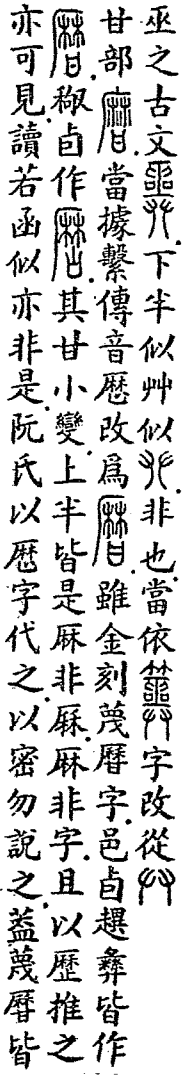 巫之古文𢍮下半似艸似𠬞非也當依簭字改從𠬞
甘部𤯍當據繫傳音歷改爲𤯌雖金刻蔑曆字邑卣趩彝皆作
𤯌䅵卣作𤯌其甘小變上半皆是厤非厤厤非字且以歷推之
亦可見讀若函似亦非是阮氏以歷字代之以密勿說之葢蔑曆皆